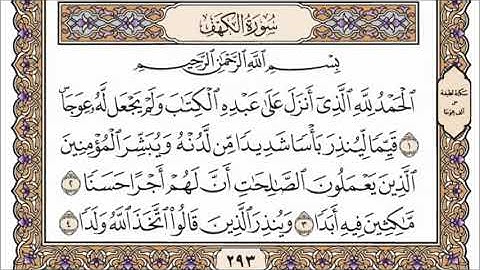 سُورَةُ الكَهْفِ
بِسْمِ ٱللَّهِ ٱلرَّحْمَٰنِ ٱلرَّحِيمِ
ٱلْحَمْدُ لِلَّهِ ٱلَّذِىٓ أَنزَلَ عَلَىٰ عَبْدِهِ ٱلْكِتَٰبَ وَلَمْ يَجْعَل لَّهُۥ عِوَجَاۜ
١ قَيِّمًا لِّيُنذِرَ بَأْسًا شَدِيدًا مِّن لَّدُنْهُ وَيُبَشِّرَ ٱلْمُؤْمِنِينَ
ٱلَّذِينَ يَعْمَلُونَ ٱلصَّٰلِحَٰتِ أَنَّ لَهُمْ أَجْرًا حَسَنًا ٢
مَّٰكِثِينَ فِيهِ أَبَدًا ٣ وَيُنذِرَ ٱلَّذِينَ قَالُوا۟ ٱتَّخَذَ ٱللَّهُ وَلَدًا ٤
٢٩٣